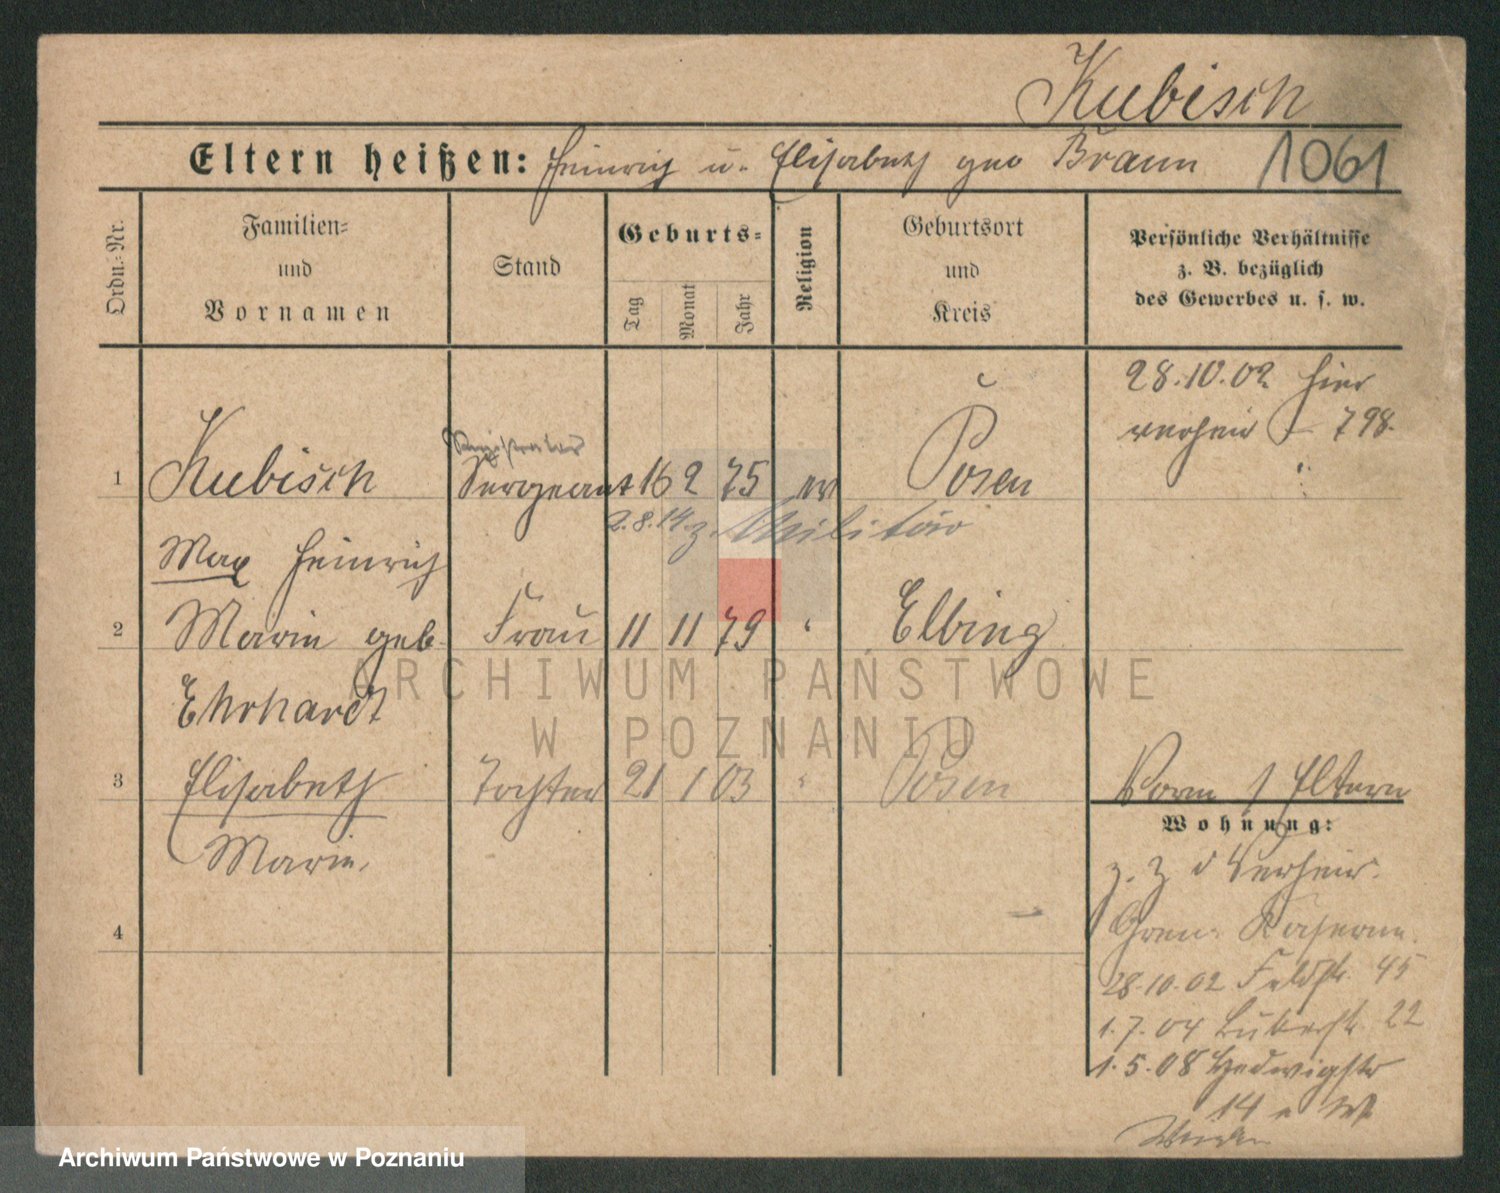 Kubisch
Eltern heißen: Heinrich u. Elisabeth geb Braun 1061
Ordn.-Nr.
Familien-
und
Vornamen
Stand
Geburts-
Tag
Monat
Jahr
Religion
Geburtsort
und
Kreis
Persönliche Verhältnisse
z. B. bezüglich
des Gewerbes u. s. w.
28.10.02 hier
verheir 798.
Registrator
1 Kubisch Sergeant 16 2 75 ev Posen
2.8.14 z. Militär
Max Heinrich
2 Marie geb. Frau 11 11 79 " Elbing
Ehrhardt
3 Elisabeth Tochter 21 1 03 " Posen
Marie.
Vorm s Eltern
Wohnung:
z. Z d Verheir.
4
Gren. Kaserne.
28.10.02 Feldstr. 45
1.7.04 22
1.5.08 Hedwigstr
14
ARCHIWUM PAŃSTWOWE
W POZNANIU
Archiwum Państwowe w Poznaniu